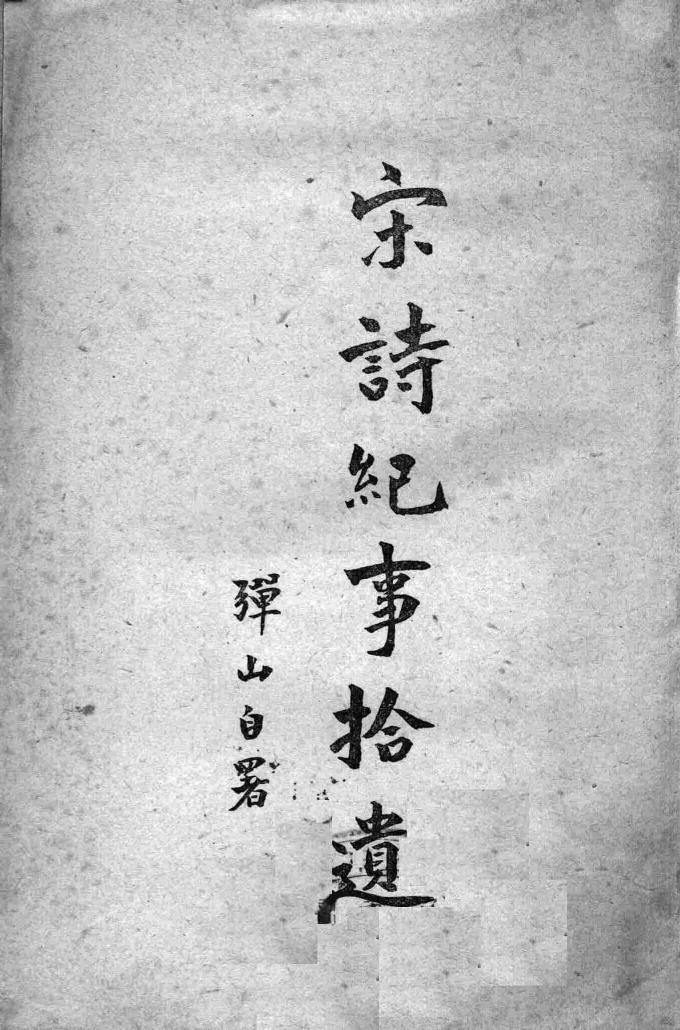 宋詩紀事拾遺
彈山自署